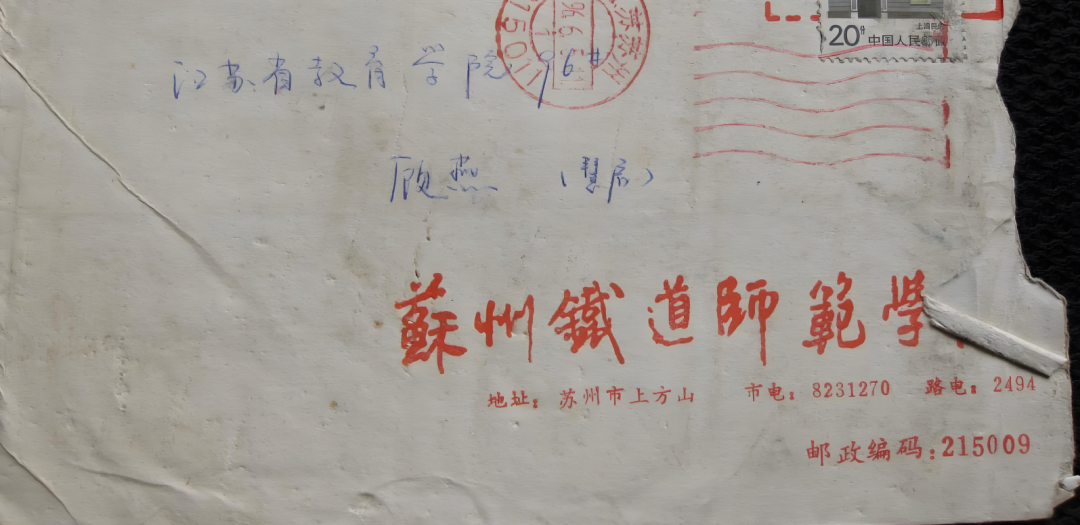 江苏省教育学院 96#
顾燕 (暂启)
江苏苏州
96.6.
1
215011
20分 中国人民邮政
上海民居
蘇州鐵道師範學
地址: 苏州市上方山 市电: 8231270 路电: 2494
邮政编码:215009